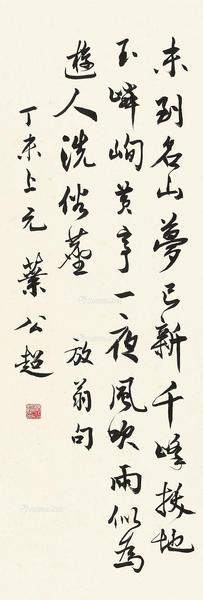 未到名山夢已新千峰拔地
玉嶙峋黃亭一夜風吹雨似為
遊人洗俗塵 放翁句
丁未上元 葉公超